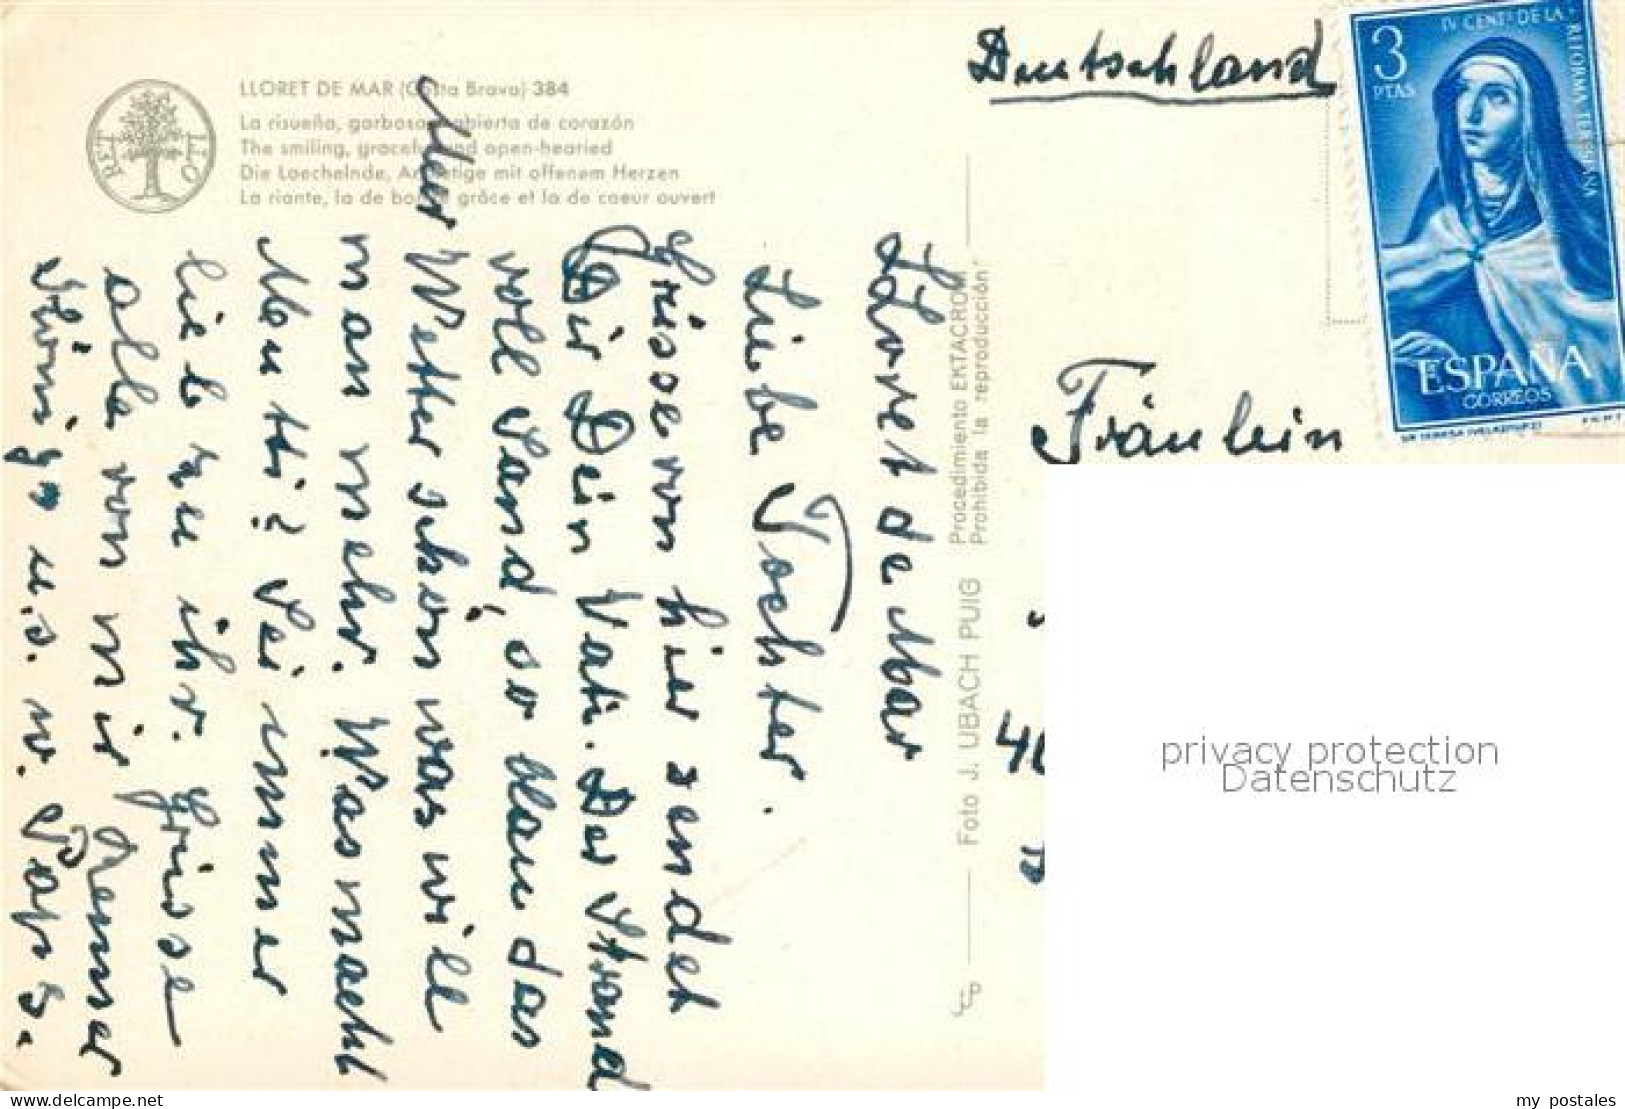 LLORET DE MAR (Costa Brava) 384
La risueña, garbosa y abierta de corazón
The smiling, graceful and open-hearied
Die Laechelnde, Anmutige mit offenem Herzen
La riante, la de bonne grâce et la de coeur ouvert
LLO
RET
Deutschland
3
PTAS
IV CENTº DE LA REFORMA TERESIANA
ESPAÑA
CORREOS
F.N.M.T.
Fräulein
LLoret de Mar
Liebe Tochter.
Grisse von hier sendet
Dir Dein Vati. Der Strand
voll Sand, so blau das
Meer Wetter schön was will
man mehr. Was macht
Mutti? Sei immer
lieb zu ihr. Grisse
alle von mir
u.s.w. Papi
Foto J. UBACH PUIG
Procedimiento EKTACROM
Prohibida la reproducción
privacy protection
Datenschutz
my postales